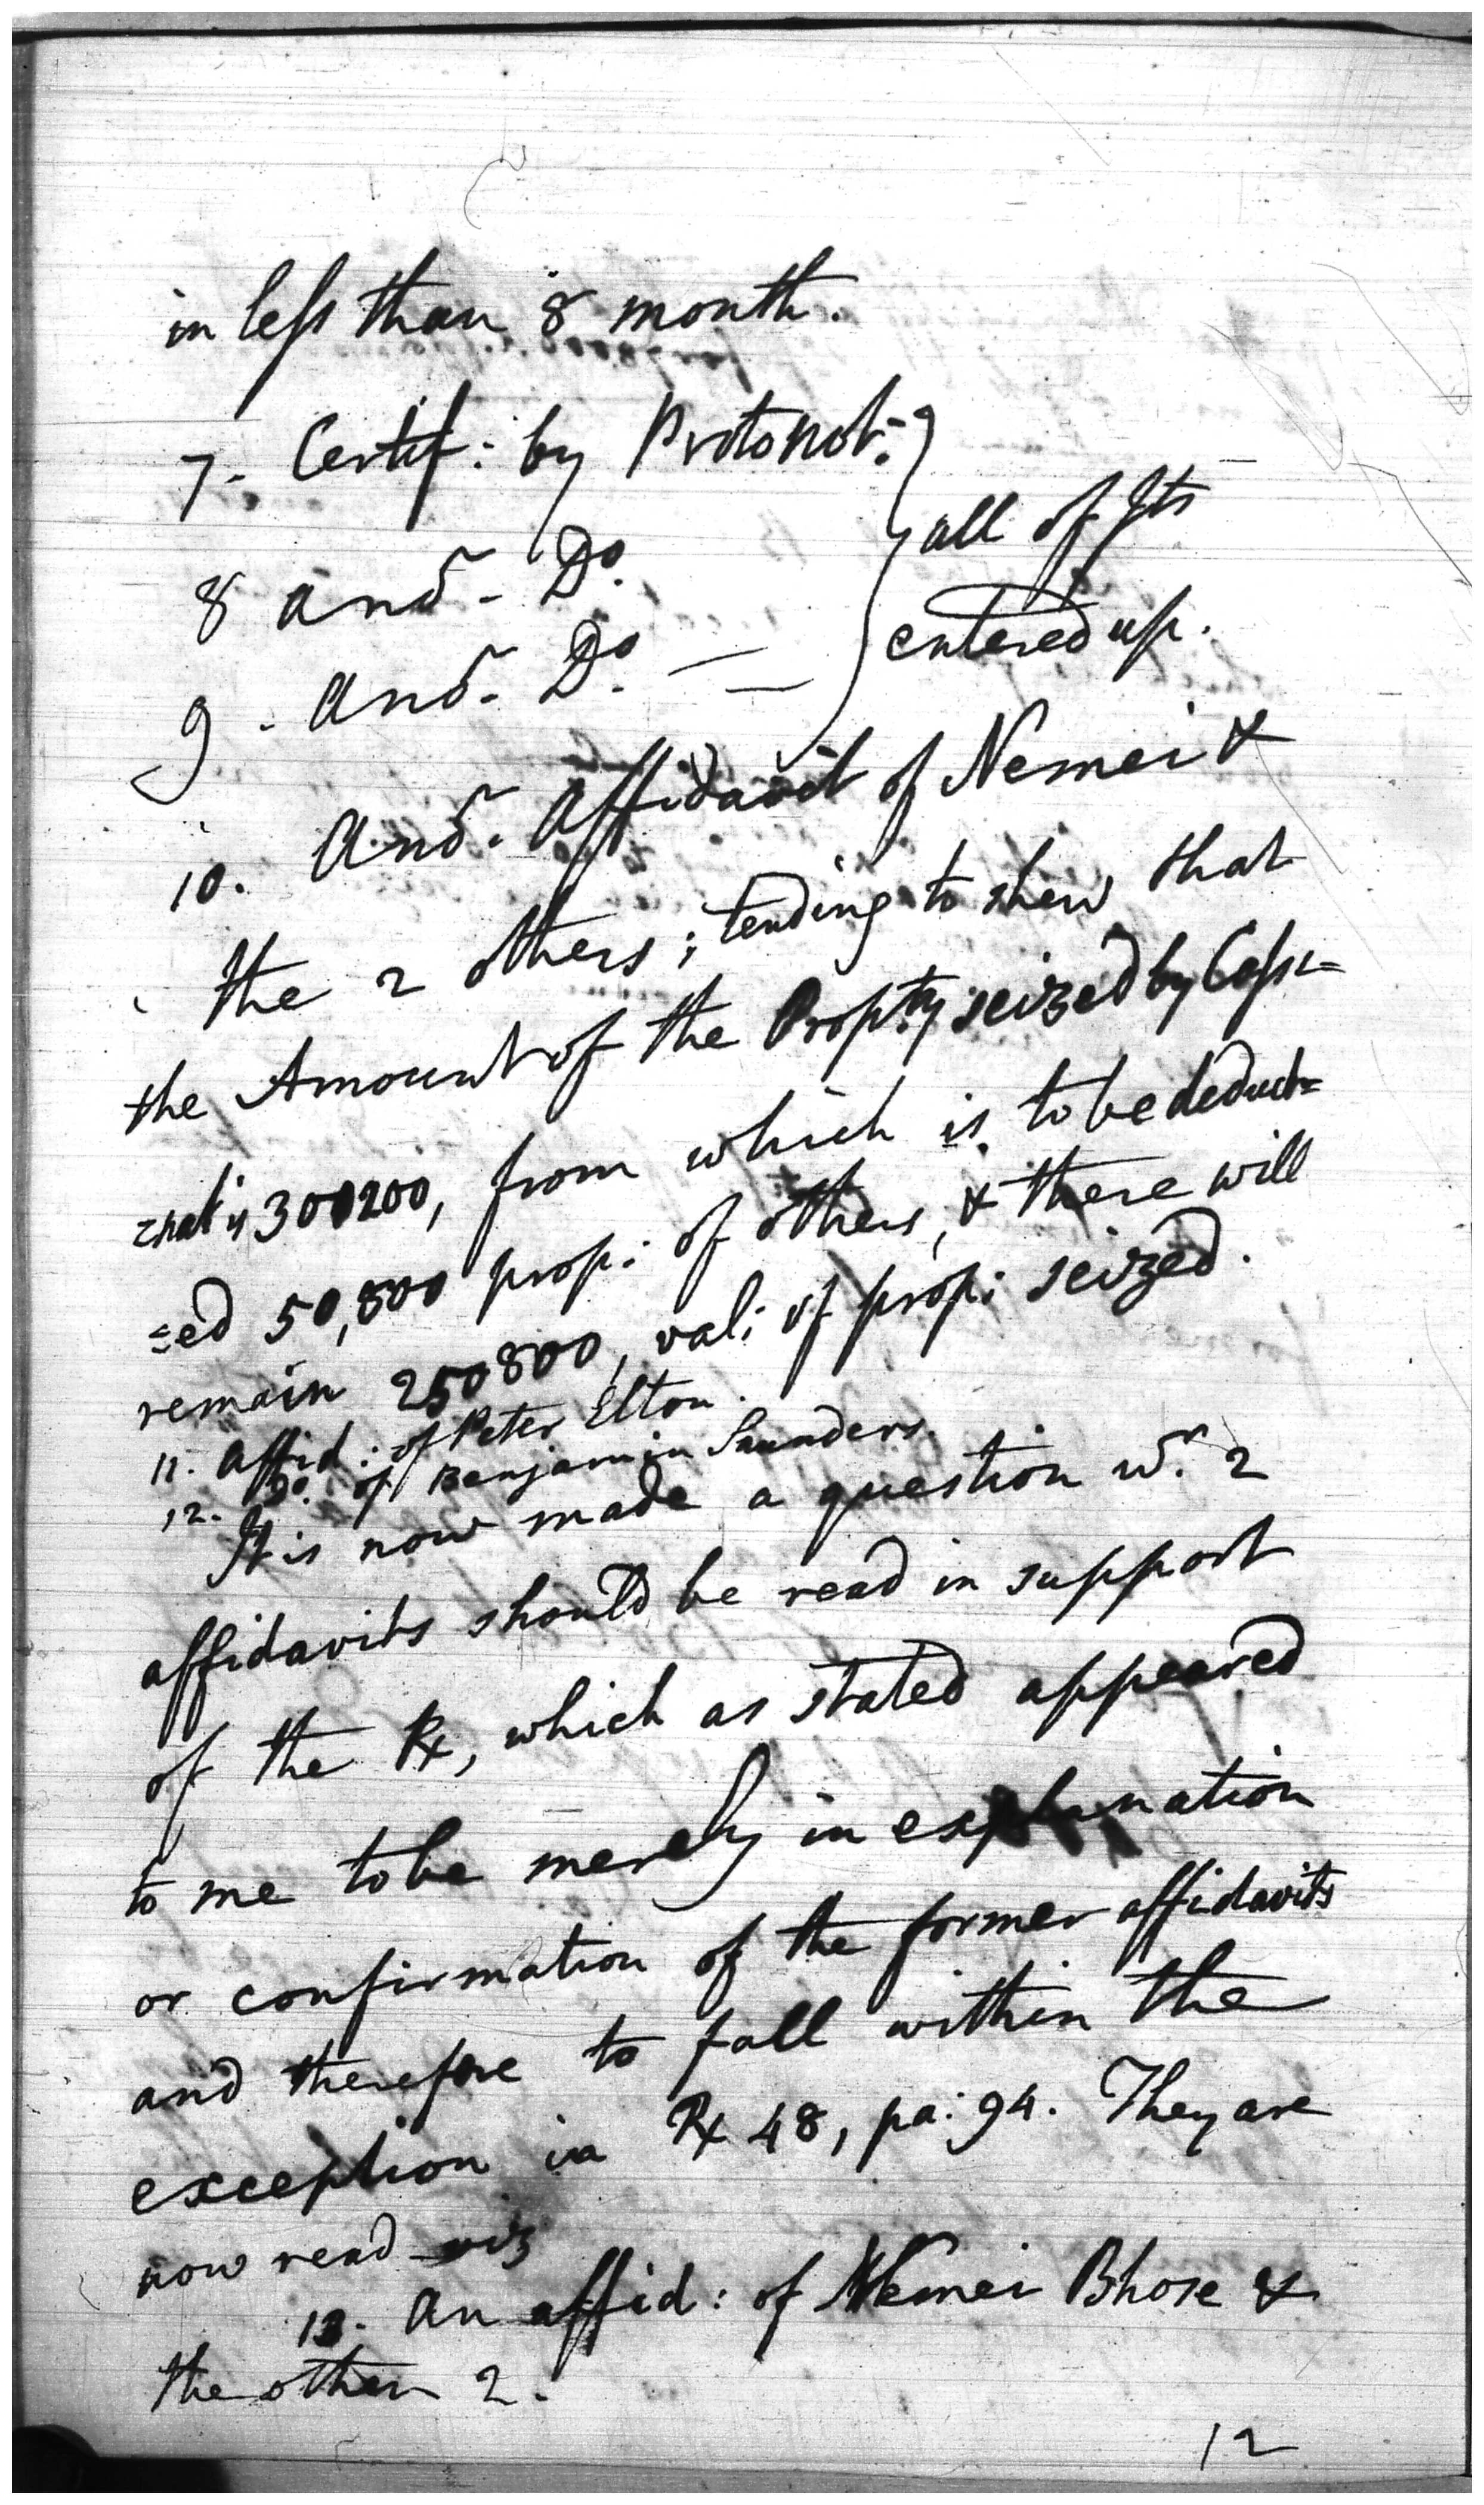 in less than 8 month.
7. Certif: by Protonot:
8 anor. Do.
all of Jts
9. Anor. Do.
entered up.
10. Anor. Affidavit of Nemei &
the 2 others; tending to shew that
the Amount of the Propty seized by Cossi=
=nat is 300200, from which is to be deduct=
=ed 50,800 prop: of others, & there will
remain 250800, val: of prop: seized.
11. Affid: of Peter Elton.
12. Do. of Benjamin Saunders.
It is now made a question wr. 2
affidavits should be read in support
of the Rx, which as stated appeared
to me to be merely in explanation
or confirmation of the former affidavits
and therefore to fall within the
exception in Rx 48, pa: 94. They are
now read viz
13. An affid: of Nemei Bhose &
the other 2.
12